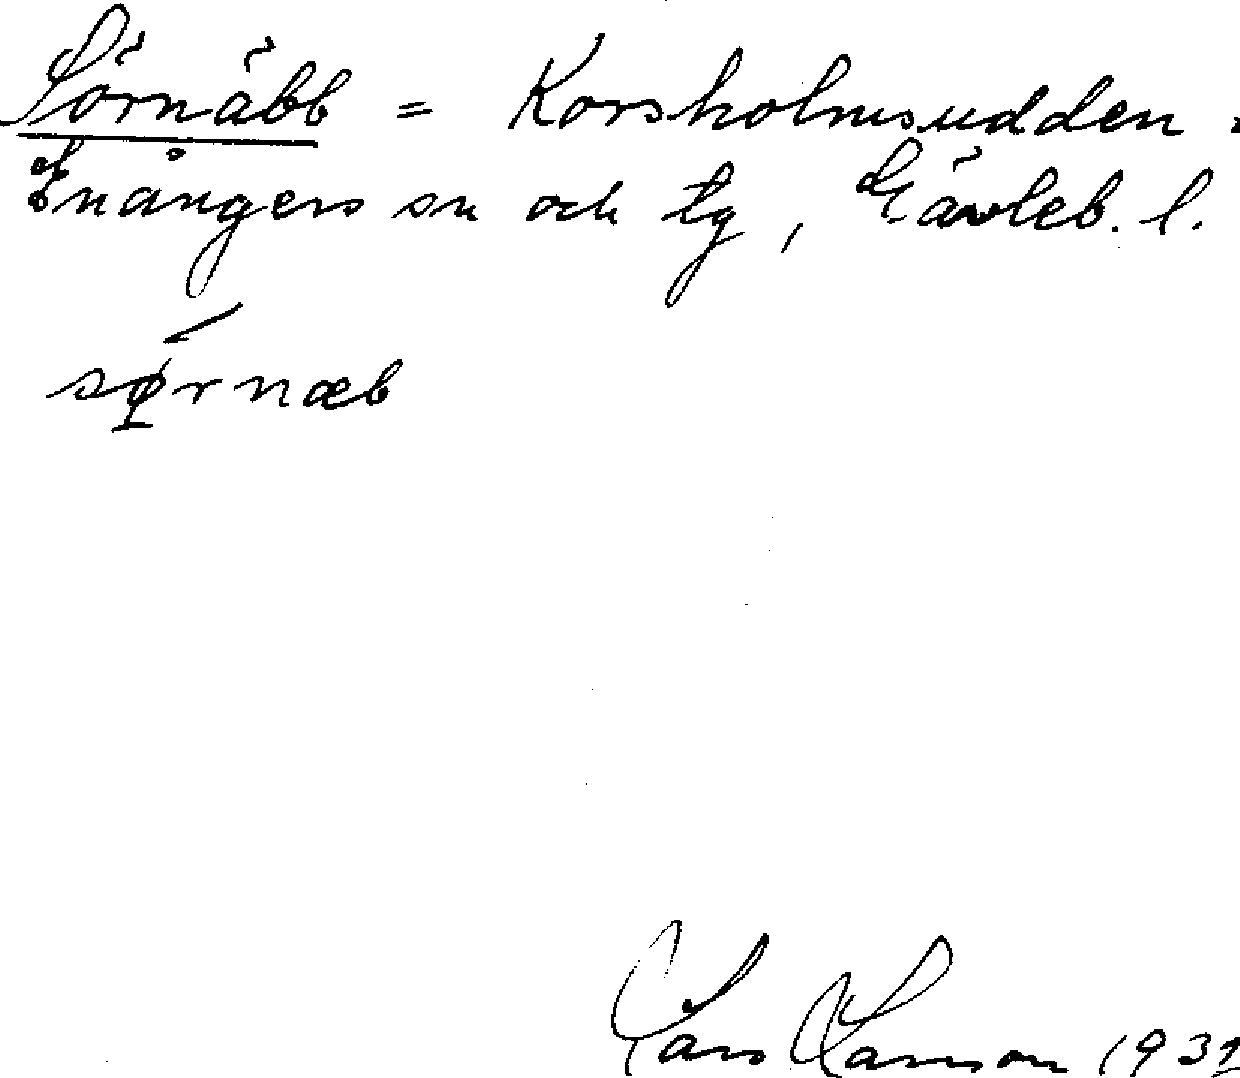 Sörnäbb = Korsholmsudden
Enångers sn och tg, Gävleb. l.
sørnæb
Lars Larsson 1931